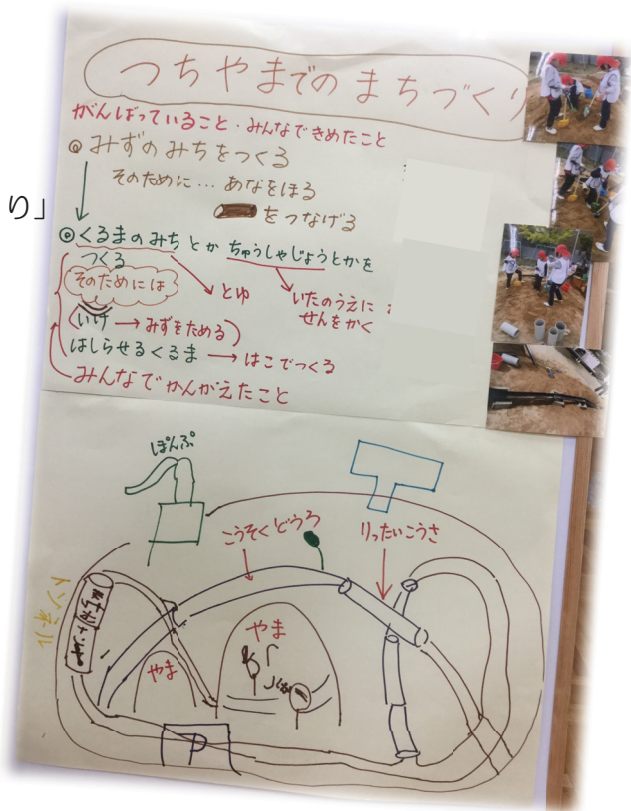 つちやまでのまちづくり
がんばっていること・みんなできめたこと
◎みずのみちをつくる
そのために…あなをほる
をつなげる
り」
◎くるまのみちとかちゅうしゃじょうとかを
つくる
そのためには
とゆ
いたのうえに
せんをかく
(いけ→みずをためる)
はしらせるくるま→はこでつくる
みんなでかんがえたこと
ぽんぷ
こうそくどうろ
りったいこうさ
トンネル
やま
やま
P